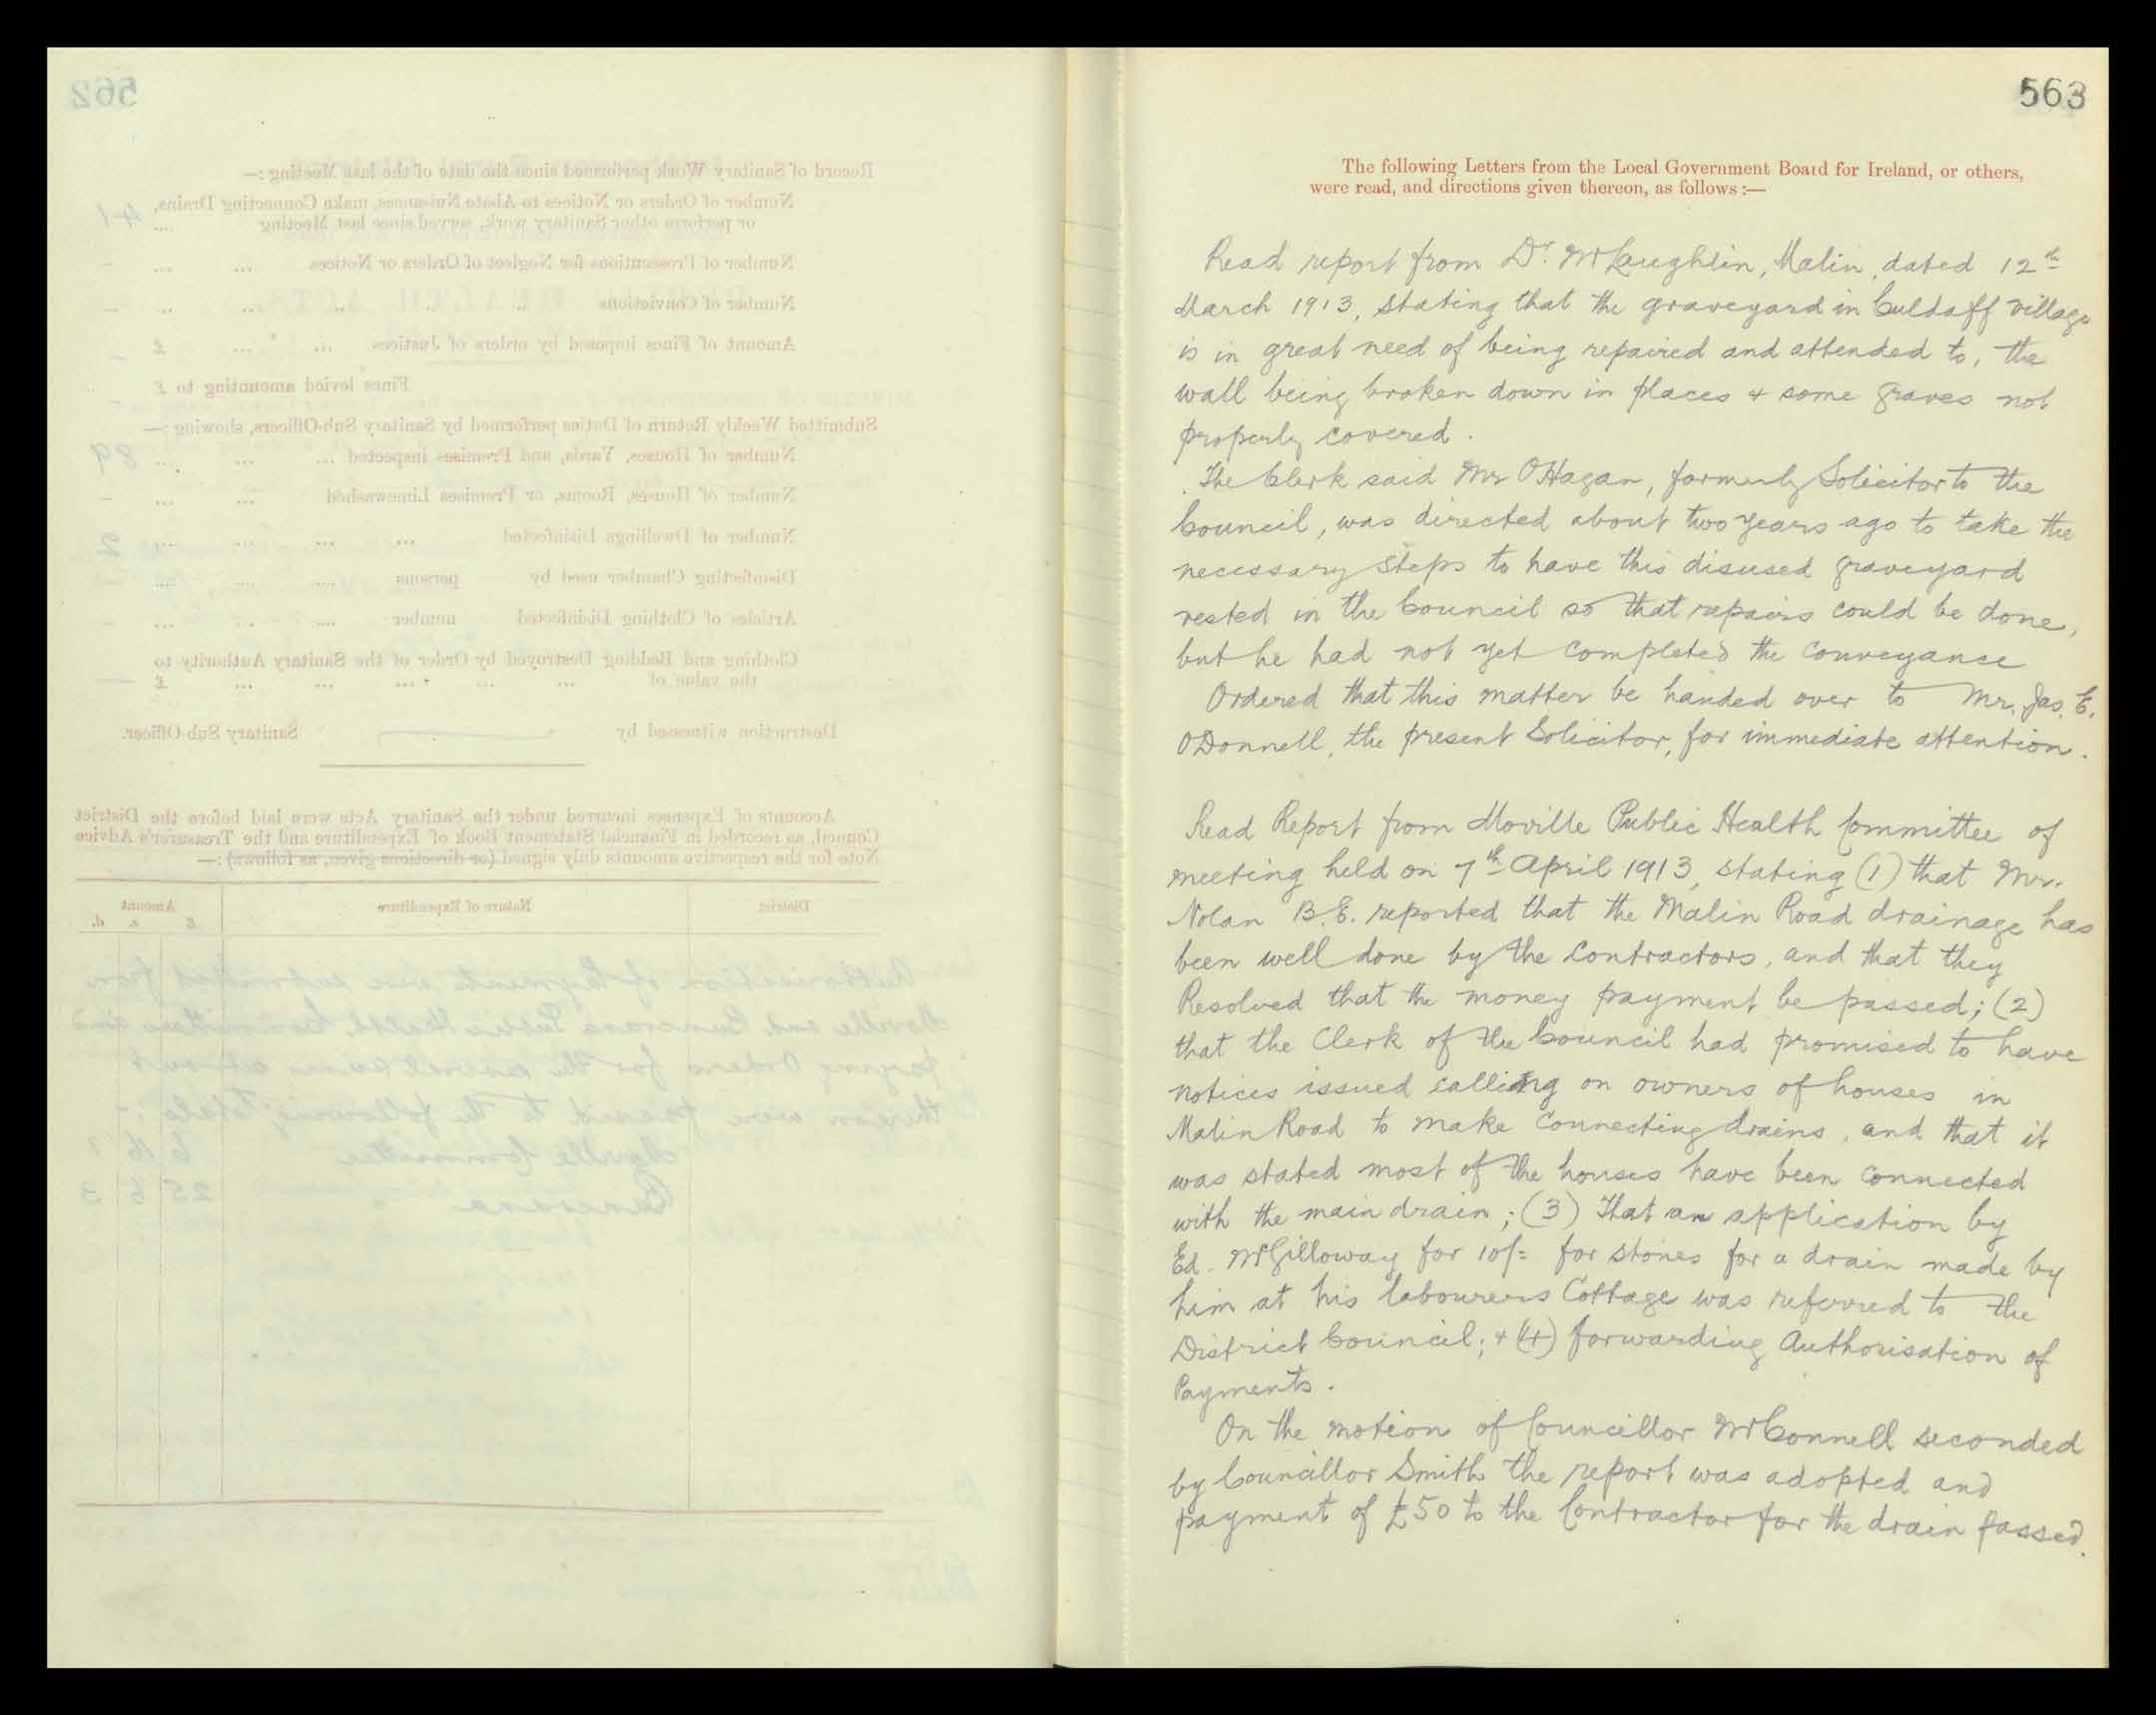 563
The following Letters from the Local Government Board for Ireland, or others,
were read, and directions given thereon, as follows :—
Read report from Dr. McLaughlin, Malin, dated 12th
March 1913, stating that the graveyard in Culdaff village
is in great need of being repaired and attended to, the
wall being broken down in places & some graves not
properly covered.
The Clerk said Mr O'Hagan, formerly Solicitor to the
Council, was directed about two years ago to take the
necessary steps to have this disused graveyard
vested in the Council so that repairs could be done,
but he had not yet completed the conveyance
Ordered that this matter be handed over to Mr. Jas. E.
O'Donnell, the present Solicitor, for immediate attention.
Read Report from Moville Public Health Committee of
meeting held on 7th April 1913, stating (1) that Mr.
Nolan B.E. reported that the Malin Road drainage has
been well done by the Contractors, and that they
Resolved that the money payment be passed; (2)
that the Clerk of the Council had promised to have
notices issued calling on owners of houses in
Malin Road to make connecting drains, and that it
was stated most of the houses have been connected
with the main drain; (3) That an application by
Ed. McGilloway for 10/= for stones for a drain made by
him at his labourers Cottage was referred to the
District Council; & (4) forwarding Authorisation of
Payments.
On the motion of Councillor McConnell seconded
by Councillor Smith the report was adopted and
payment of £50 to the Contractor for the drain passed.